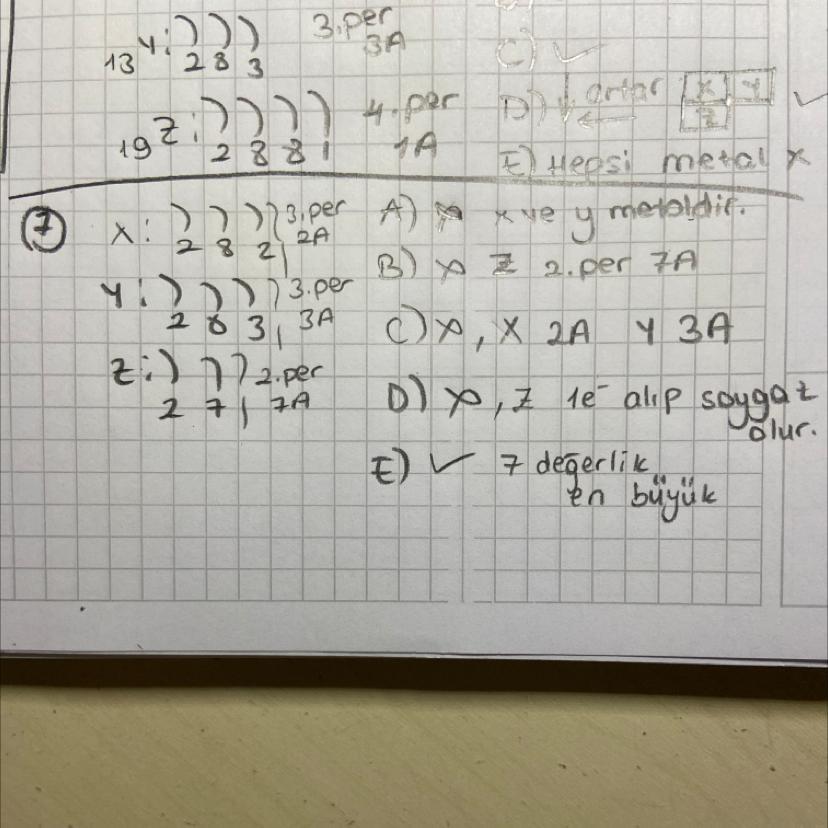 13Y: ) ) ) 3.per
2 8 3 3A
C) ✓
19Z: ) ) ) ) 4.per
2 8 8 1 1A
D) ↓ artar ← X Y Z ✓
E) Hepsi metal x
7
X: ) ) ) 3.per
2 8 2, 2A
Y: ) ) ) 3.per
2 8 3, 3A
Z: ) ) 2.per
2 7, 7A
A) x x ve y metaldir.
B) x Z 2.per 7A
C) x, X 2A Y 3A
D) x, Z 1e⁻ alıp soygaz
olur.
E) ✓ 7 değerlik
en büyük